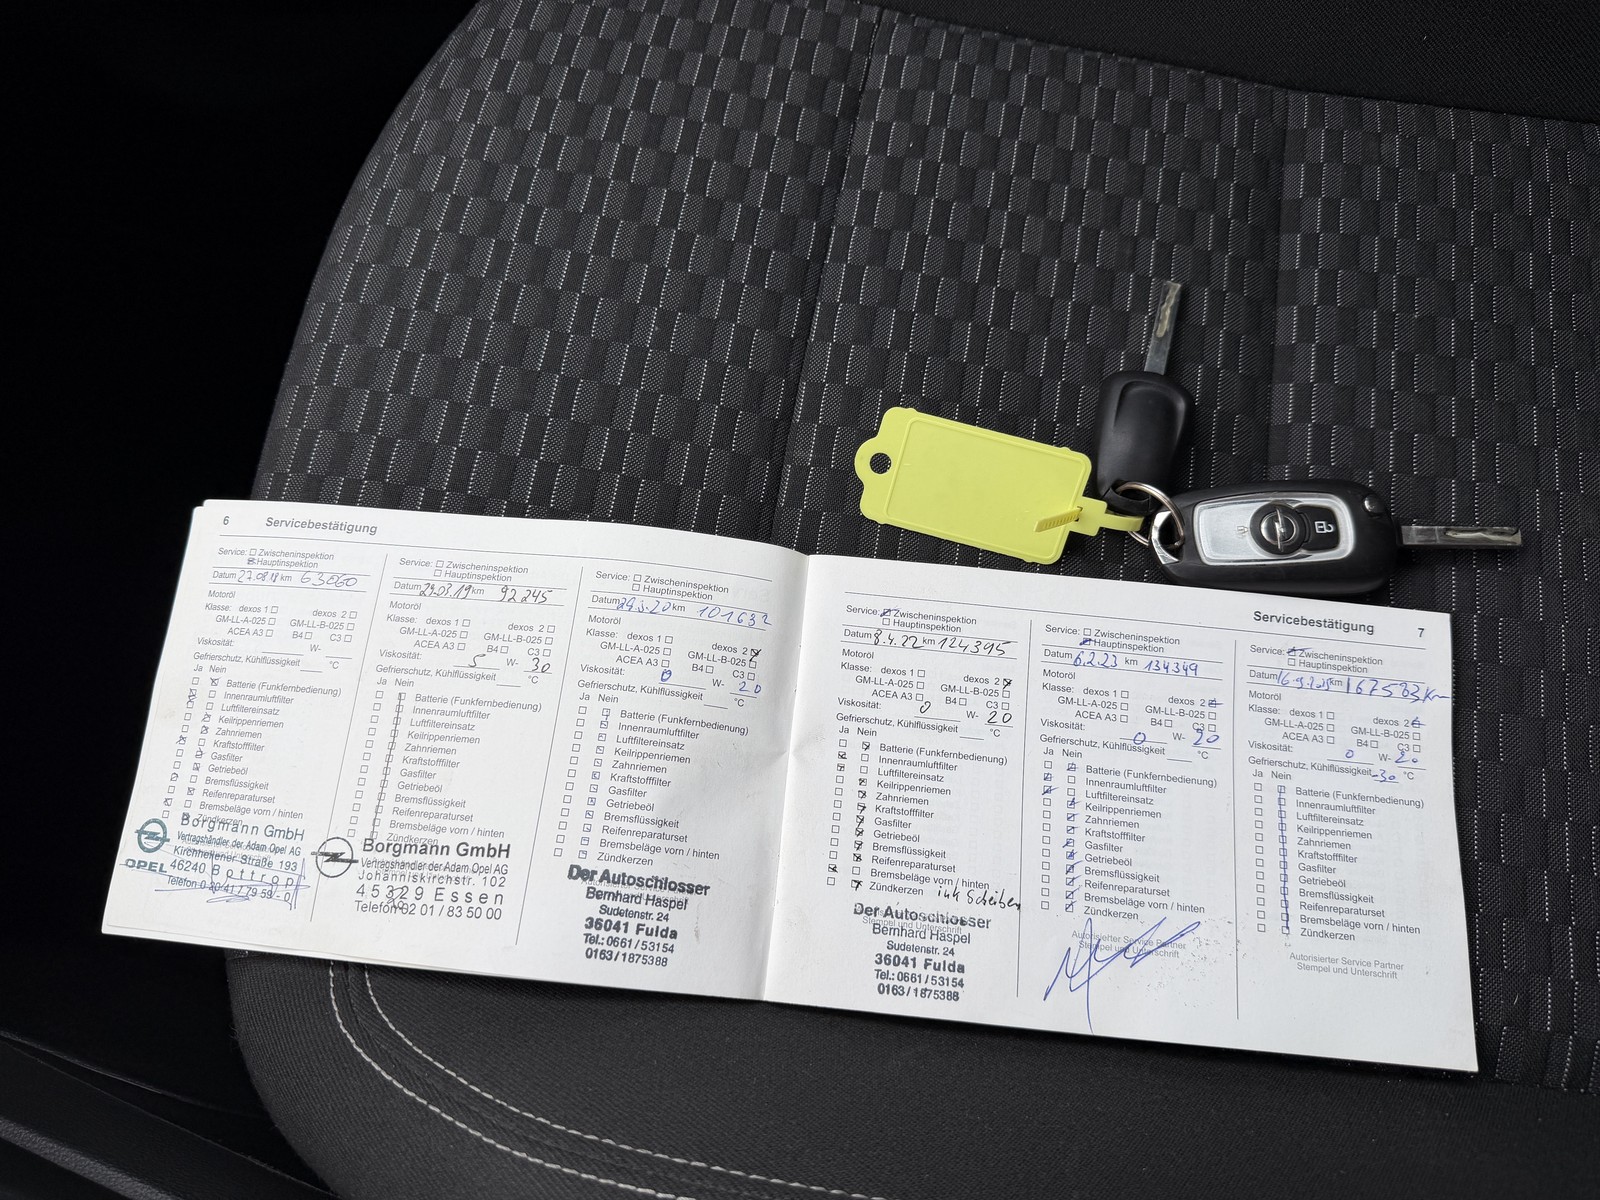 6 Servicebestätigung
Service: Zwischeninspektion
Hauptinspektion
Datum 27.08.18 km 63060
Motoröl
Klasse: dexos 1 dexos 2
GM-LL-A-025 GM-LL-B-025
ACEA A3 B4 C3
Viskosität: W-
Gefrierschutz, Kühlflüssigkeit °C
Ja Nein
Batterie (Funkfernbedienung)
Innenraumluftfilter
Luftfiltereinsatz
Keilrippenriemen
Zahnriemen
Kraftstofffilter
Gasfilter
Getriebeöl
Bremsflüssigkeit
Reifenreparaturset
Bremsbeläge vorn / hinten
Zündkerzen
Borgmann GmbH
Vertragshändler der Adam Opel AG
Kirchhellener Straße 193
46240 Bottrop
OPEL
Telefon 0 20 41 / 7 79 59 - 0
Service: Zwischeninspektion
Hauptinspektion
Datum 29.03.19 km 92245
Motoröl
Klasse: dexos 1 dexos 2
GM-LL-A-025 GM-LL-B-025
ACEA A3 B4 C3
Viskosität: 5 W- 30
Gefrierschutz, Kühlflüssigkeit °C
Ja Nein
Batterie (Funkfernbedienung)
Innenraumluftfilter
Luftfiltereinsatz
Keilrippenriemen
Zahnriemen
Kraftstofffilter
Gasfilter
Getriebeöl
Bremsflüssigkeit
Reifenreparaturset
Bremsbeläge vorn / hinten
Zündkerzen
Borgmann GmbH
Vertragshändler der Adam Opel AG
Johanniskirchstr. 102
45329 Essen
Telefon 02 01 / 83 50 00
Service: Zwischeninspektion
Hauptinspektion
Datum km 101632
Motoröl
Klasse: dexos 1 dexos 2
GM-LL-A-025 GM-LL-B-025
ACEA A3 B4 C3
Viskosität: 0 W- 20
Gefrierschutz, Kühlflüssigkeit °C
Ja Nein
Batterie (Funkfernbedienung)
Innenraumluftfilter
Luftfiltereinsatz
Keilrippenriemen
Zahnriemen
Kraftstofffilter
Gasfilter
Getriebeöl
Bremsflüssigkeit
Reifenreparaturset
Bremsbeläge vorn / hinten
Zündkerzen
Der Autoschlosser
Bernhard Haspel
Sudetenstr. 24
36041 Fulda
Tel.: 0661 / 53154
0163 / 1875388
Servicebestätigung 7
Service: Zwischeninspektion
Hauptinspektion
Datum 8.4.22 km 124395
Motoröl
Klasse: dexos 1 dexos 2
GM-LL-A-025 GM-LL-B-025
ACEA A3 B4 C3
Viskosität: 0 W- 20
Gefrierschutz, Kühlflüssigkeit °C
Ja Nein
Batterie (Funkfernbedienung)
Innenraumluftfilter
Luftfiltereinsatz
Keilrippenriemen
Zahnriemen
Kraftstofffilter
Gasfilter
Getriebeöl
Bremsflüssigkeit
Reifenreparaturset
Bremsbeläge vorn / hinten
Zündkerzen ink Scheiben
Der Autoschlosser
Stempel und Unterschrift
Bernhard Haspel
Sudetenstr. 24
36041 Fulda
Tel.: 0661 / 53154
0163 / 1875388
Service: Zwischeninspektion
Hauptinspektion
Datum 6.2.23 km 134349
Motoröl
Klasse: dexos 1 dexos 2
GM-LL-A-025 GM-LL-B-025
ACEA A3 B4 C3
Viskosität: 0 W- 20
Gefrierschutz, Kühlflüssigkeit °C
Ja Nein
Batterie (Funkfernbedienung)
Innenraumluftfilter
Luftfiltereinsatz
Keilrippenriemen
Zahnriemen
Kraftstofffilter
Gasfilter
Getriebeöl
Bremsflüssigkeit
Reifenreparaturset
Bremsbeläge vorn / hinten
Zündkerzen
Autorisierter Service Partner
Stempel und Unterschrift
Service: Zwischeninspektion
Hauptinspektion
Datum km 167583 km
Motoröl
Klasse: dexos 1 dexos 2
GM-LL-A-025 GM-LL-B-025
ACEA A3 B4 C3
Viskosität: 0 W- 20
Gefrierschutz, Kühlflüssigkeit -30 °C
Ja Nein
Batterie (Funkfernbedienung)
Innenraumluftfilter
Luftfiltereinsatz
Keilrippenriemen
Zahnriemen
Kraftstofffilter
Gasfilter
Getriebeöl
Bremsflüssigkeit
Reifenreparaturset
Bremsbeläge vorn / hinten
Zündkerzen
Autorisierter Service Partner
Stempel und Unterschrift